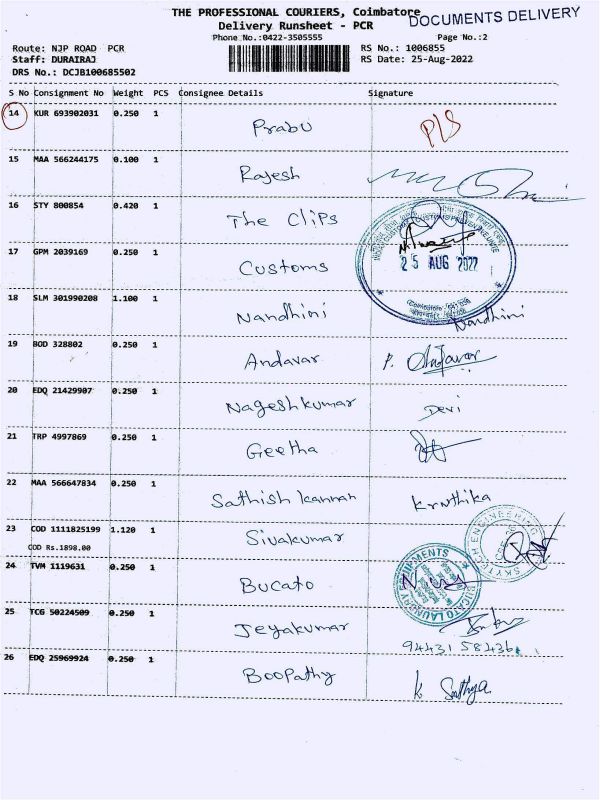 THE PROFESSIONAL COURIERS, Coimbatore
DOCUMENTS DELIVERY
Delivery Runsheet - PCR
Phone No.:0422-3505555
Page No.:2
Route: NJP ROAD PCR
RS No.: 1006855
Staff: DURAIRAJ
RS Date: 25-Aug-2022
DRS No.: DCJB100685502
S No Consignment No Weight PCS Consignee Details Signature
14 KUR 693902031 0.250 1 Prabu PLS
15 MAA 566244175 0.100 1 Rajesh
16 STY 800854 0.420 1 The Clips
17 GPM 2039169 0.250 1 Customs
25 AUG 2022
18 SLM 301990208 1.100 1 Nandhini Nandhini
19 BOD 328802 0.250 1 Andavar P. Andavar
20 EDQ 21429907 0.250 1 Nageshkumar Devi
21 TRP 4997869 0.250 1 Geetha
22 MAA 566647834 0.250 1 Sathish kannan Krithika
23 COD 1111825199 1.120 1 Sivakumar
COD Rs.1898.00
24 TVM 1119631 0.250 1 Bucato
BUCATO LAUNDRY EQUIPMENTS
25 TCG 50224509 0.250 1 Jeyakumar
94431 58436
26 EDQ 25969924 0.250 1 Boopathy K Sathya